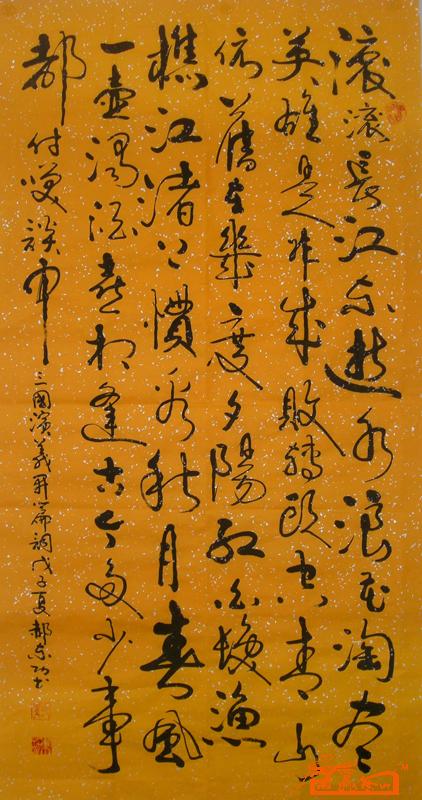 滚滚长江东逝水浪花淘尽
英雄是非成败转头空青山
依旧在几度夕阳红白发渔
樵江渚上惯看秋月春风
一壶浊酒喜相逢古今多少事
都付笑谈中
三國演义开篇词戊子夏郝东功书